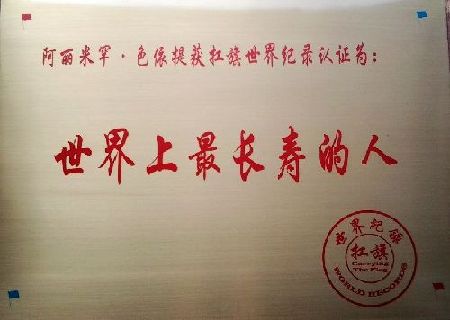 阿丽米罕·色依提获扛旗世界纪录认证为：
世界上最长寿的人
世界纪录
扛旗
Carrying
The Flag
WORLD RECORDS